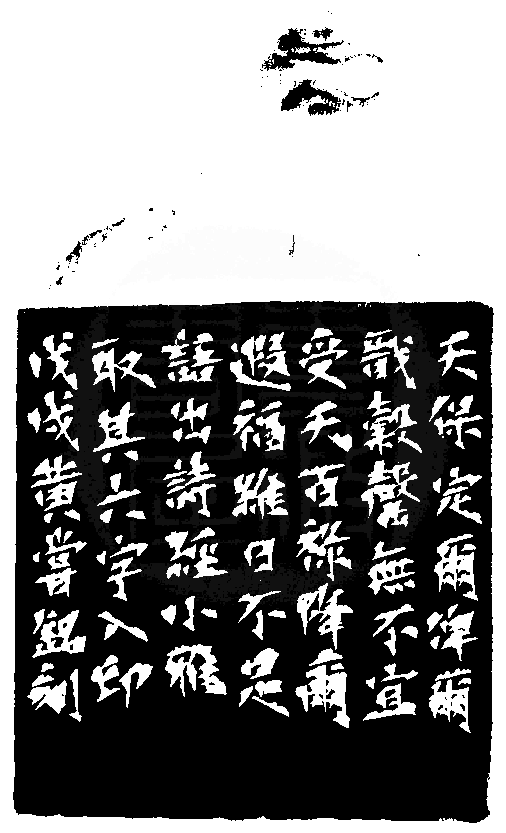 天保定爾俾爾
戩穀罄無不宜
受天百祿降爾
遐福維日不足
語出詩經小雅
取其六字入印
戊戌黃嘗銘刻